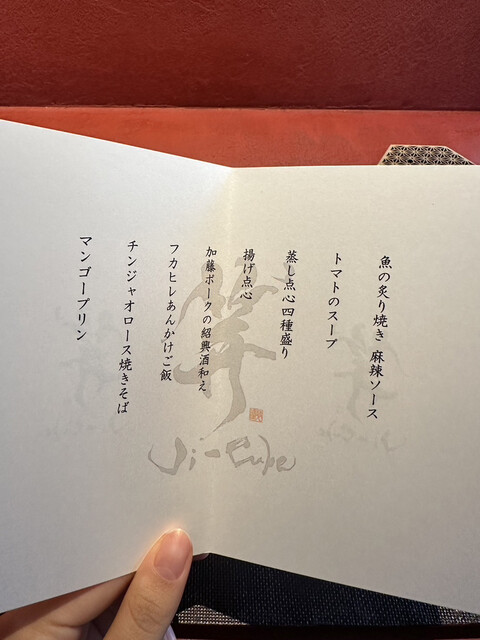 魚の炙り焼き 麻辣ソース
トマトのスープ
蒸し点心四種盛り
揚げ点心
加藤ポークの紹興酒和え
フカヒレあんかけご飯
チンジャオロース焼きそば
マンゴープリン
Ji-Cube